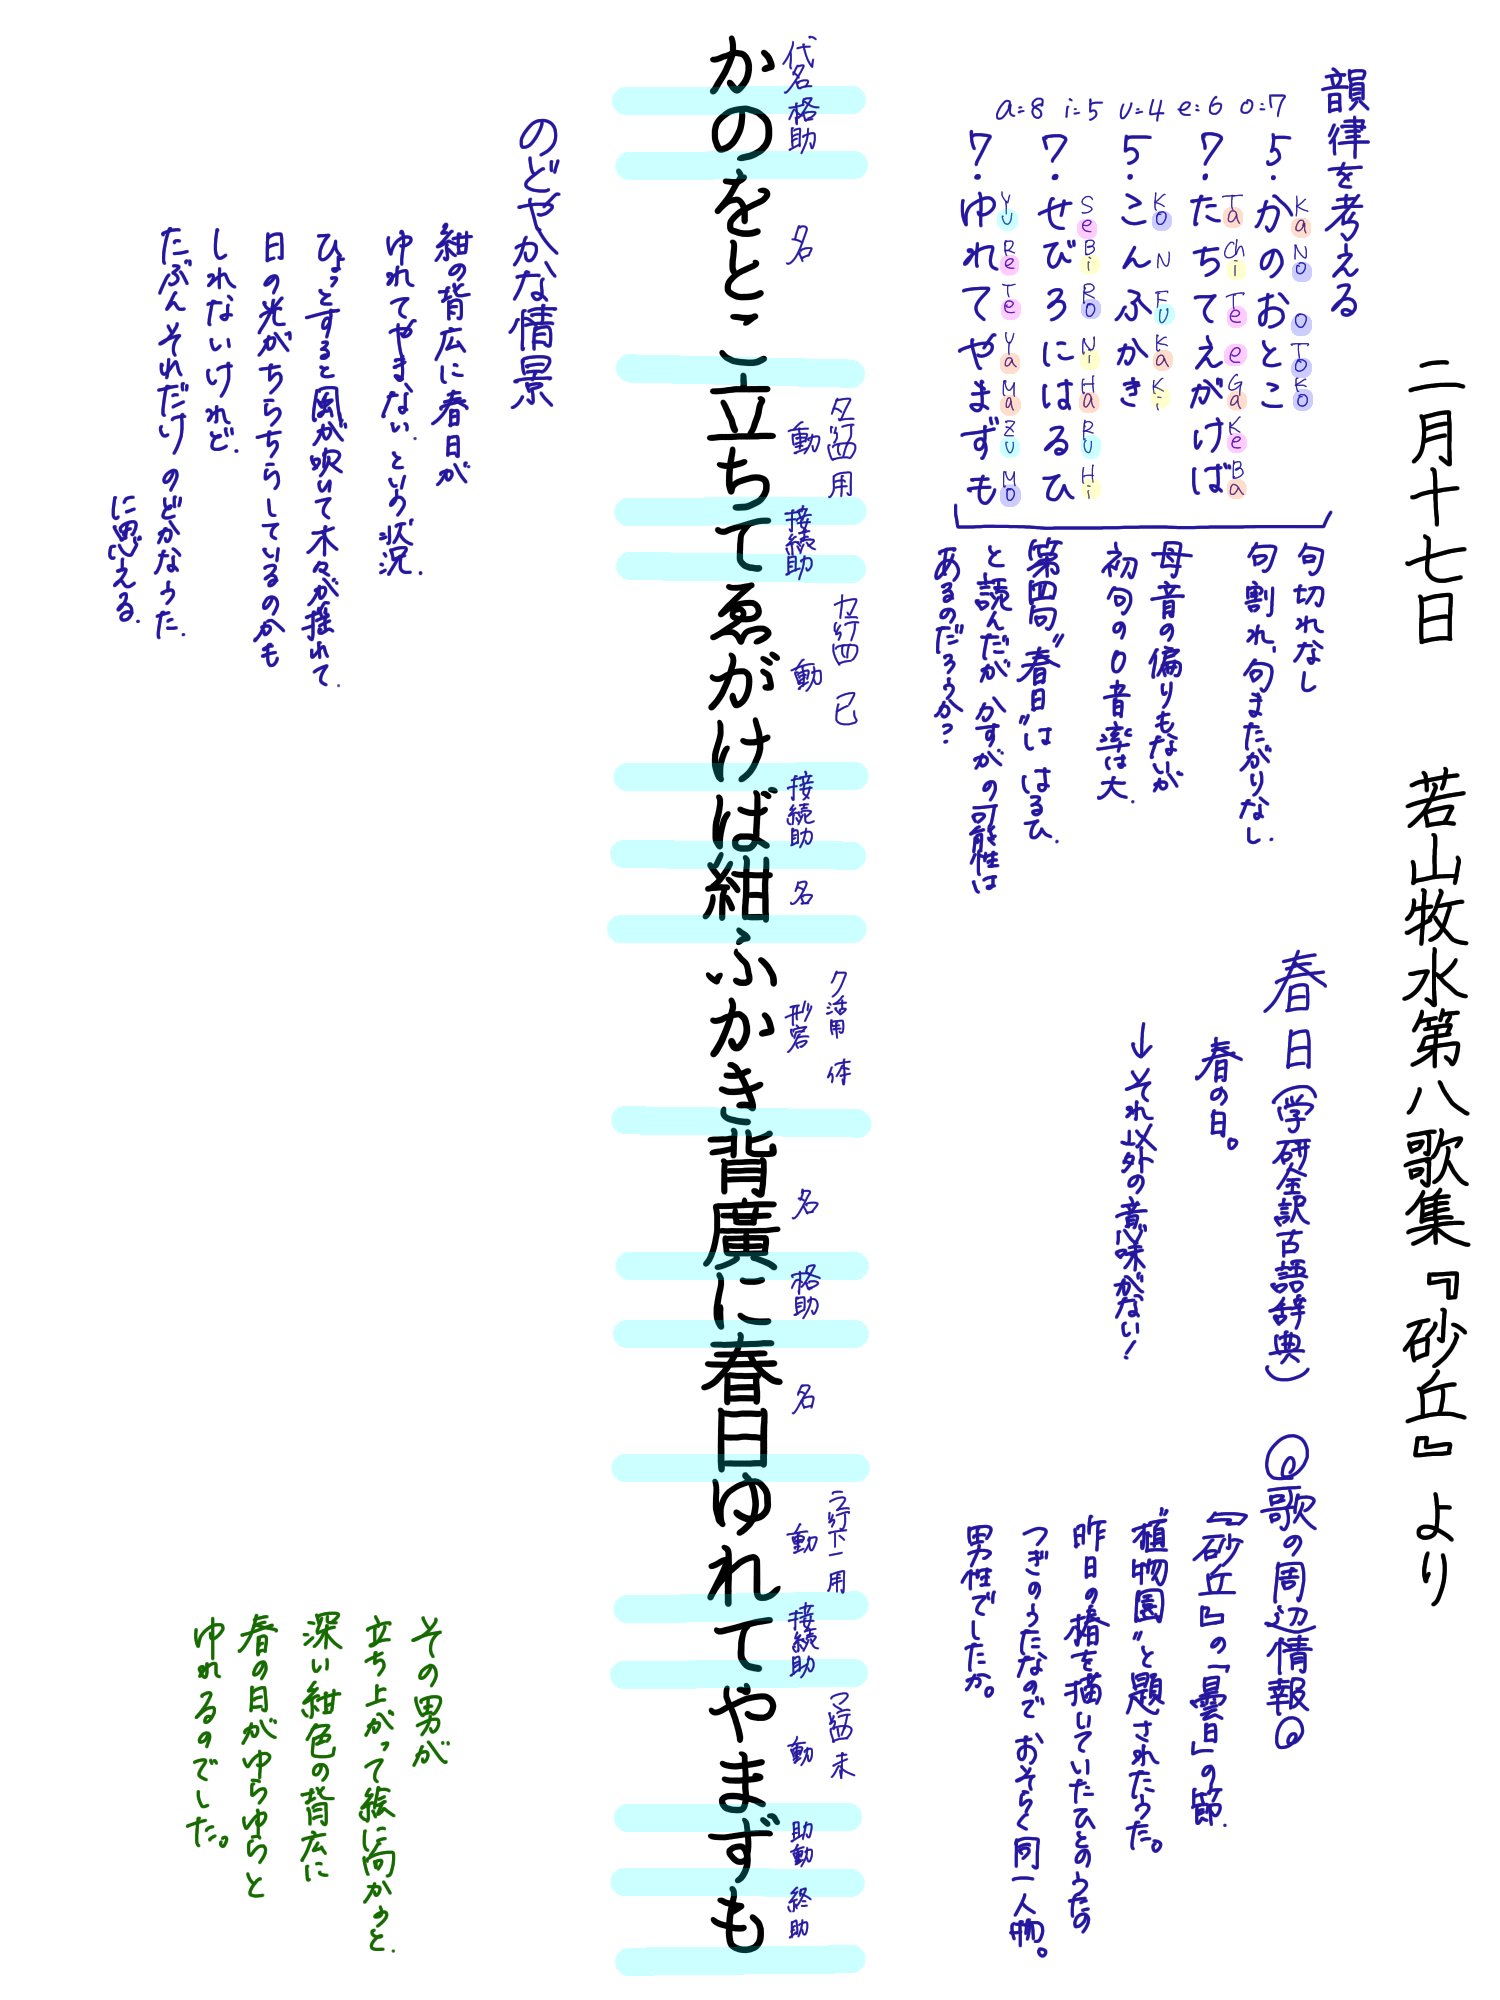 二月十七日 若山牧水第八歌集『砂丘』より
韻律を考える
a=8 i=5 u=4 e=6 o=7
5.かのおとこ
Ka No o To Ko
7.たちてえがけば
Ta chi Te e Ga Ke Ba
5.こんふかき
Ko N Fu Ka Ki
7.せびろにはるひ
Se Bi Ro Ni Ha Ru Hi
7.ゆれてやまずも
Yu Re Te Ya Ma Zu Mo
句切れなし
句割れ、句またがりなし.
母音の偏りもないが
初句のO音率は大.
第四句"春日"は はるひ.
と読んだが かすが の可能性は
あるのだろうか?
春日(学研全訳古語辞典)
春の日。
→それ以外の意味がない!
歌の周辺情報
『砂丘』の「曇日」の節.
"植物園"と題されたうた。
昨日の椿を描いていたひとのうたの
つぎのうたなので おそらく同一人物。
男性でしたか。
代名 格助 名 タ行四 用 動 接続助 カ行四 已 動 接続助 名 ク活用 体 形容 名 格助 名 ラ行下一 用 動 接続助 マ行四 未 動 助動 終助
かのをとこ立ちてゑがけば紺ふかき背廣に春日ゆれてやまずも
のどやかな情景
紺の背広に春日が
ゆれてやまない. という状況.
ひょっとすると風が吹いて木々が揺れて.
日の光がちらちらしているのかも
しれないけれど.
たぶんそれだけ のどかなうた.
に思える.
その男が
立ち上がって絵に向かうと.
深い紺色の背広に
春の日がゆらゆらと
ゆれるのでした。